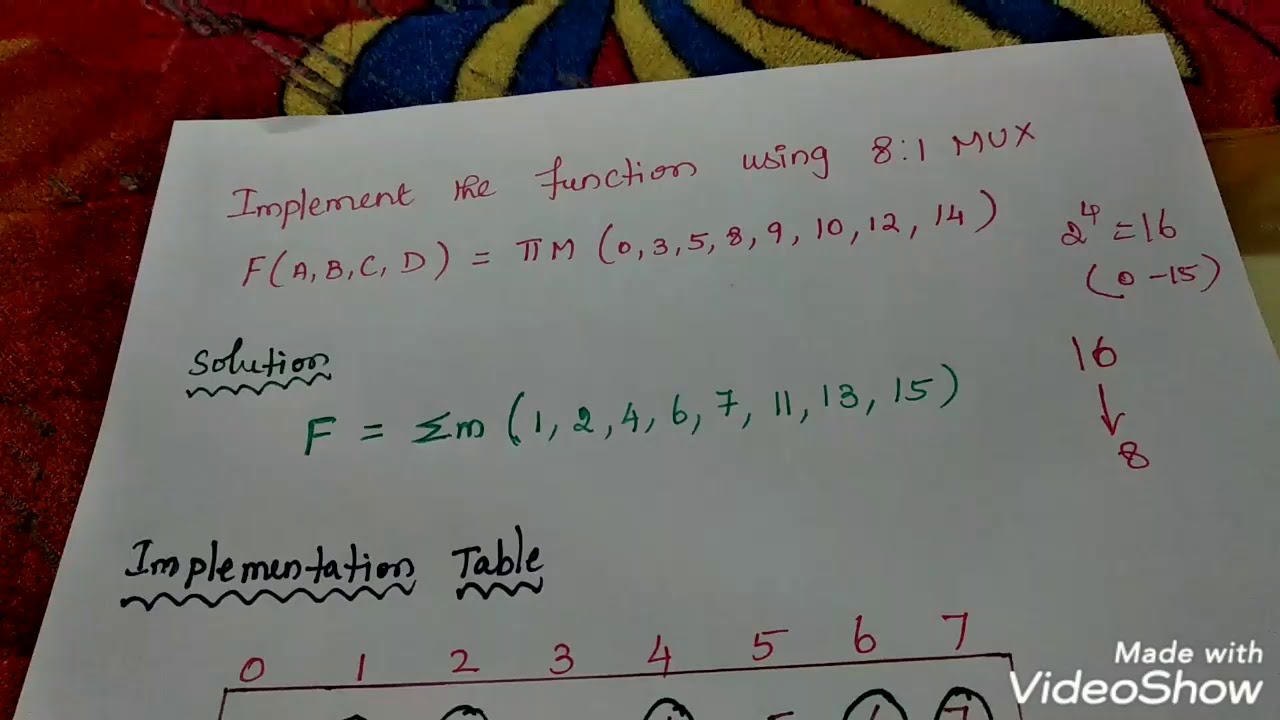 Implement the function using 8:1 MUX
F(A,B,C,D) = πM (0,3,5,8,9,10,12,14)
2⁴=16
(0-15)
Solution
16
↓
8
F = Σm (1,2,4,6,7,11,13,15)
Implementation Table
0 1 2 3 4 5 6 7
Made with
VideoShow